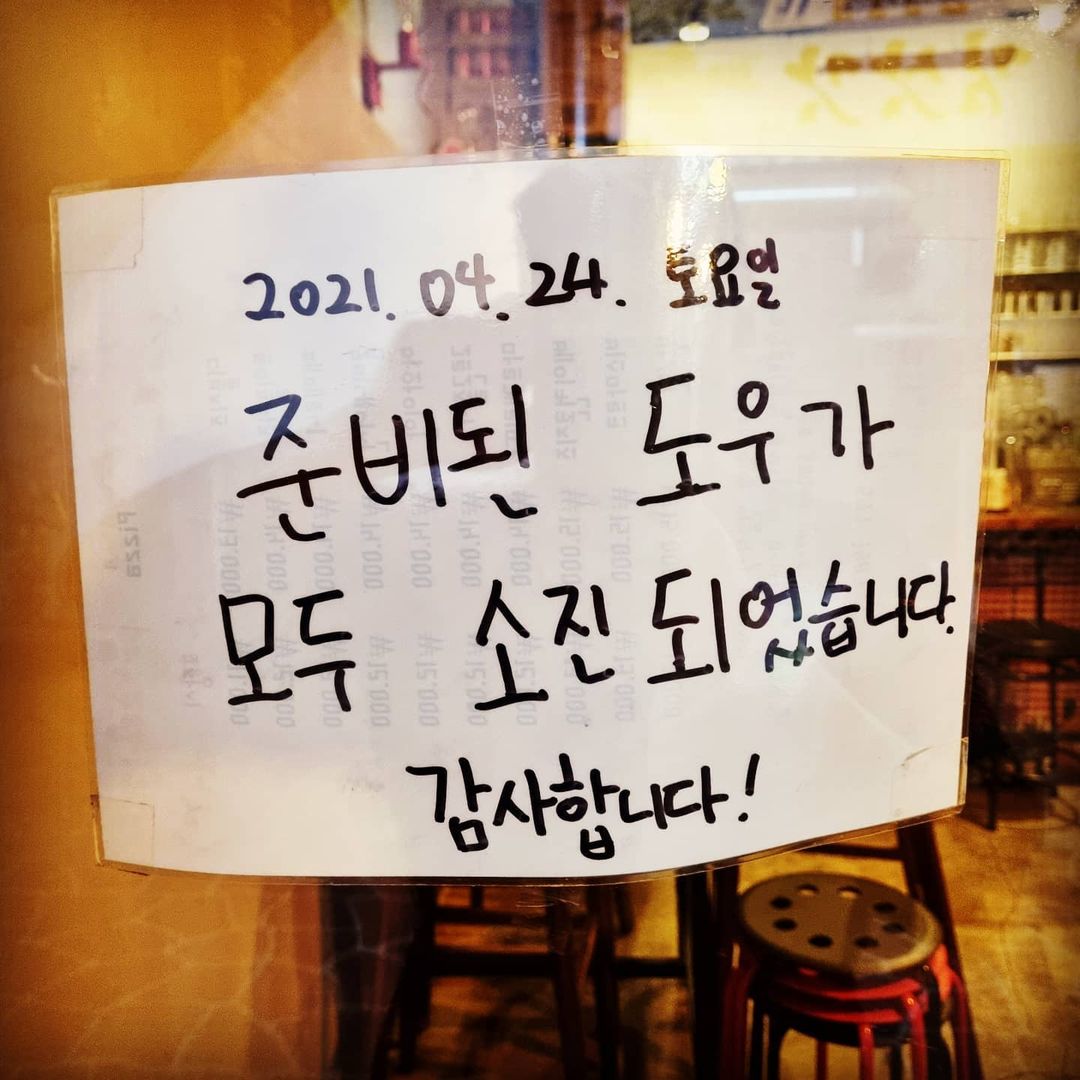 2021. 04. 24. 토요일
준비된 도우가
모두 소진되었습니다.
감사합니다!
Pizza